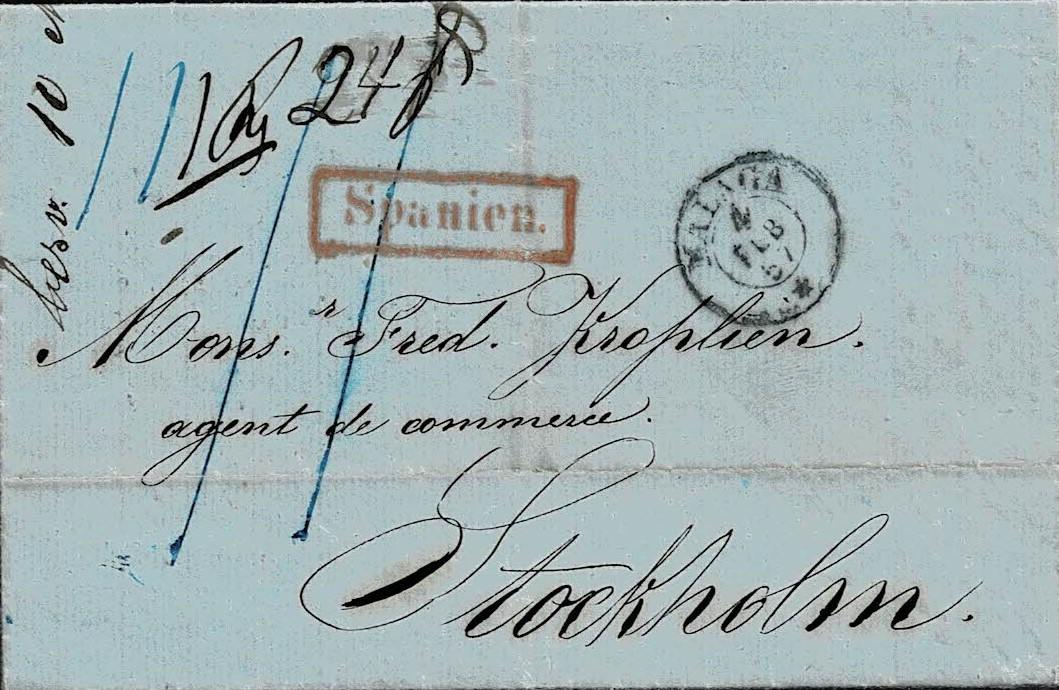 10
24
Spanien.
MALAGA
FEB
67
Monsr. Fred. Kroplien.
agent de commerce.
Stockholm.